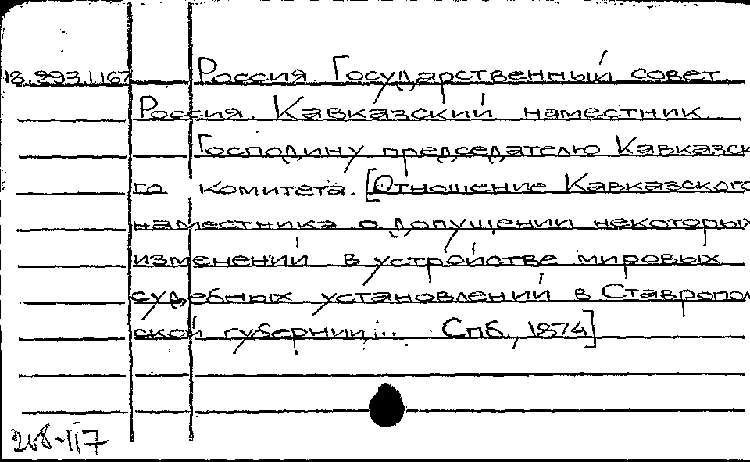 18.293.1.167 Россия. Государственный совет
Россия. Кавказский наместник
Господину председателю Кавказск
го комитета. [Отношение Кавказского
наместника о допущении некоторых
изменений в устройстве мировых
судебных установлений в Ставропол
ской губернии... Спб., 1874]
268-117